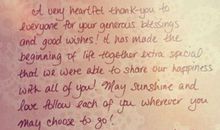 A very heartfelt thank-you to
everyone for your generous blessings
and good wishes! It has made the
beginning of life together extra special
that we were able to share our happiness
with all of you! May sunshine and
love follow each of you wherever you
may choose to go!